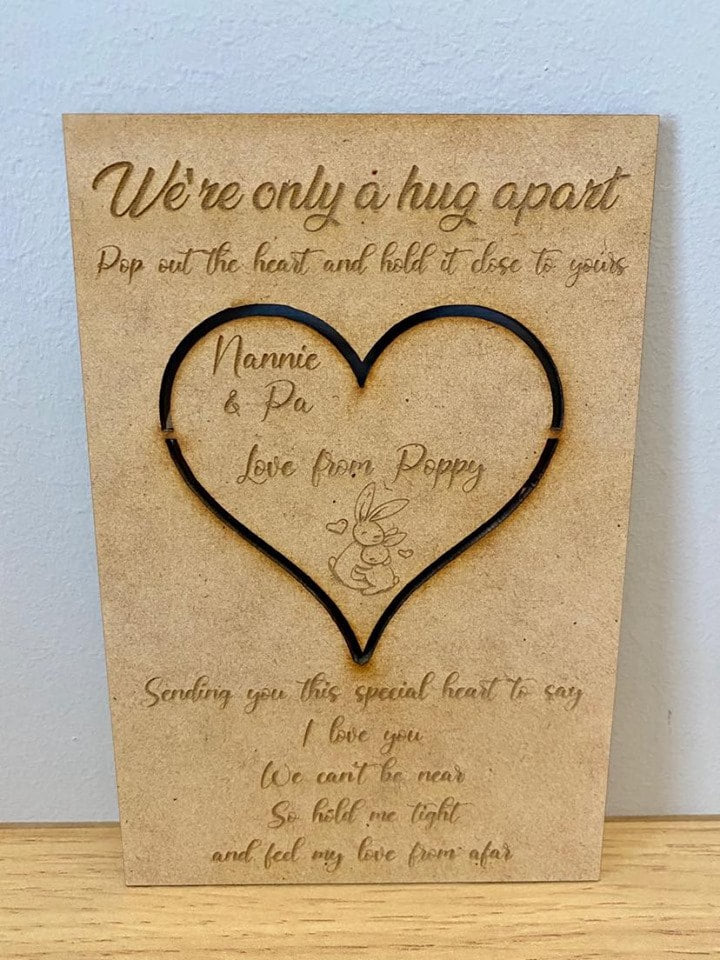 We're only a hug apart
Pop out the heart and hold it close to yours
Nannie
& Pa
Love from Poppy
Sending you this special heart to say
I love you
We can't be near
So hold me tight
and feel my love from afar